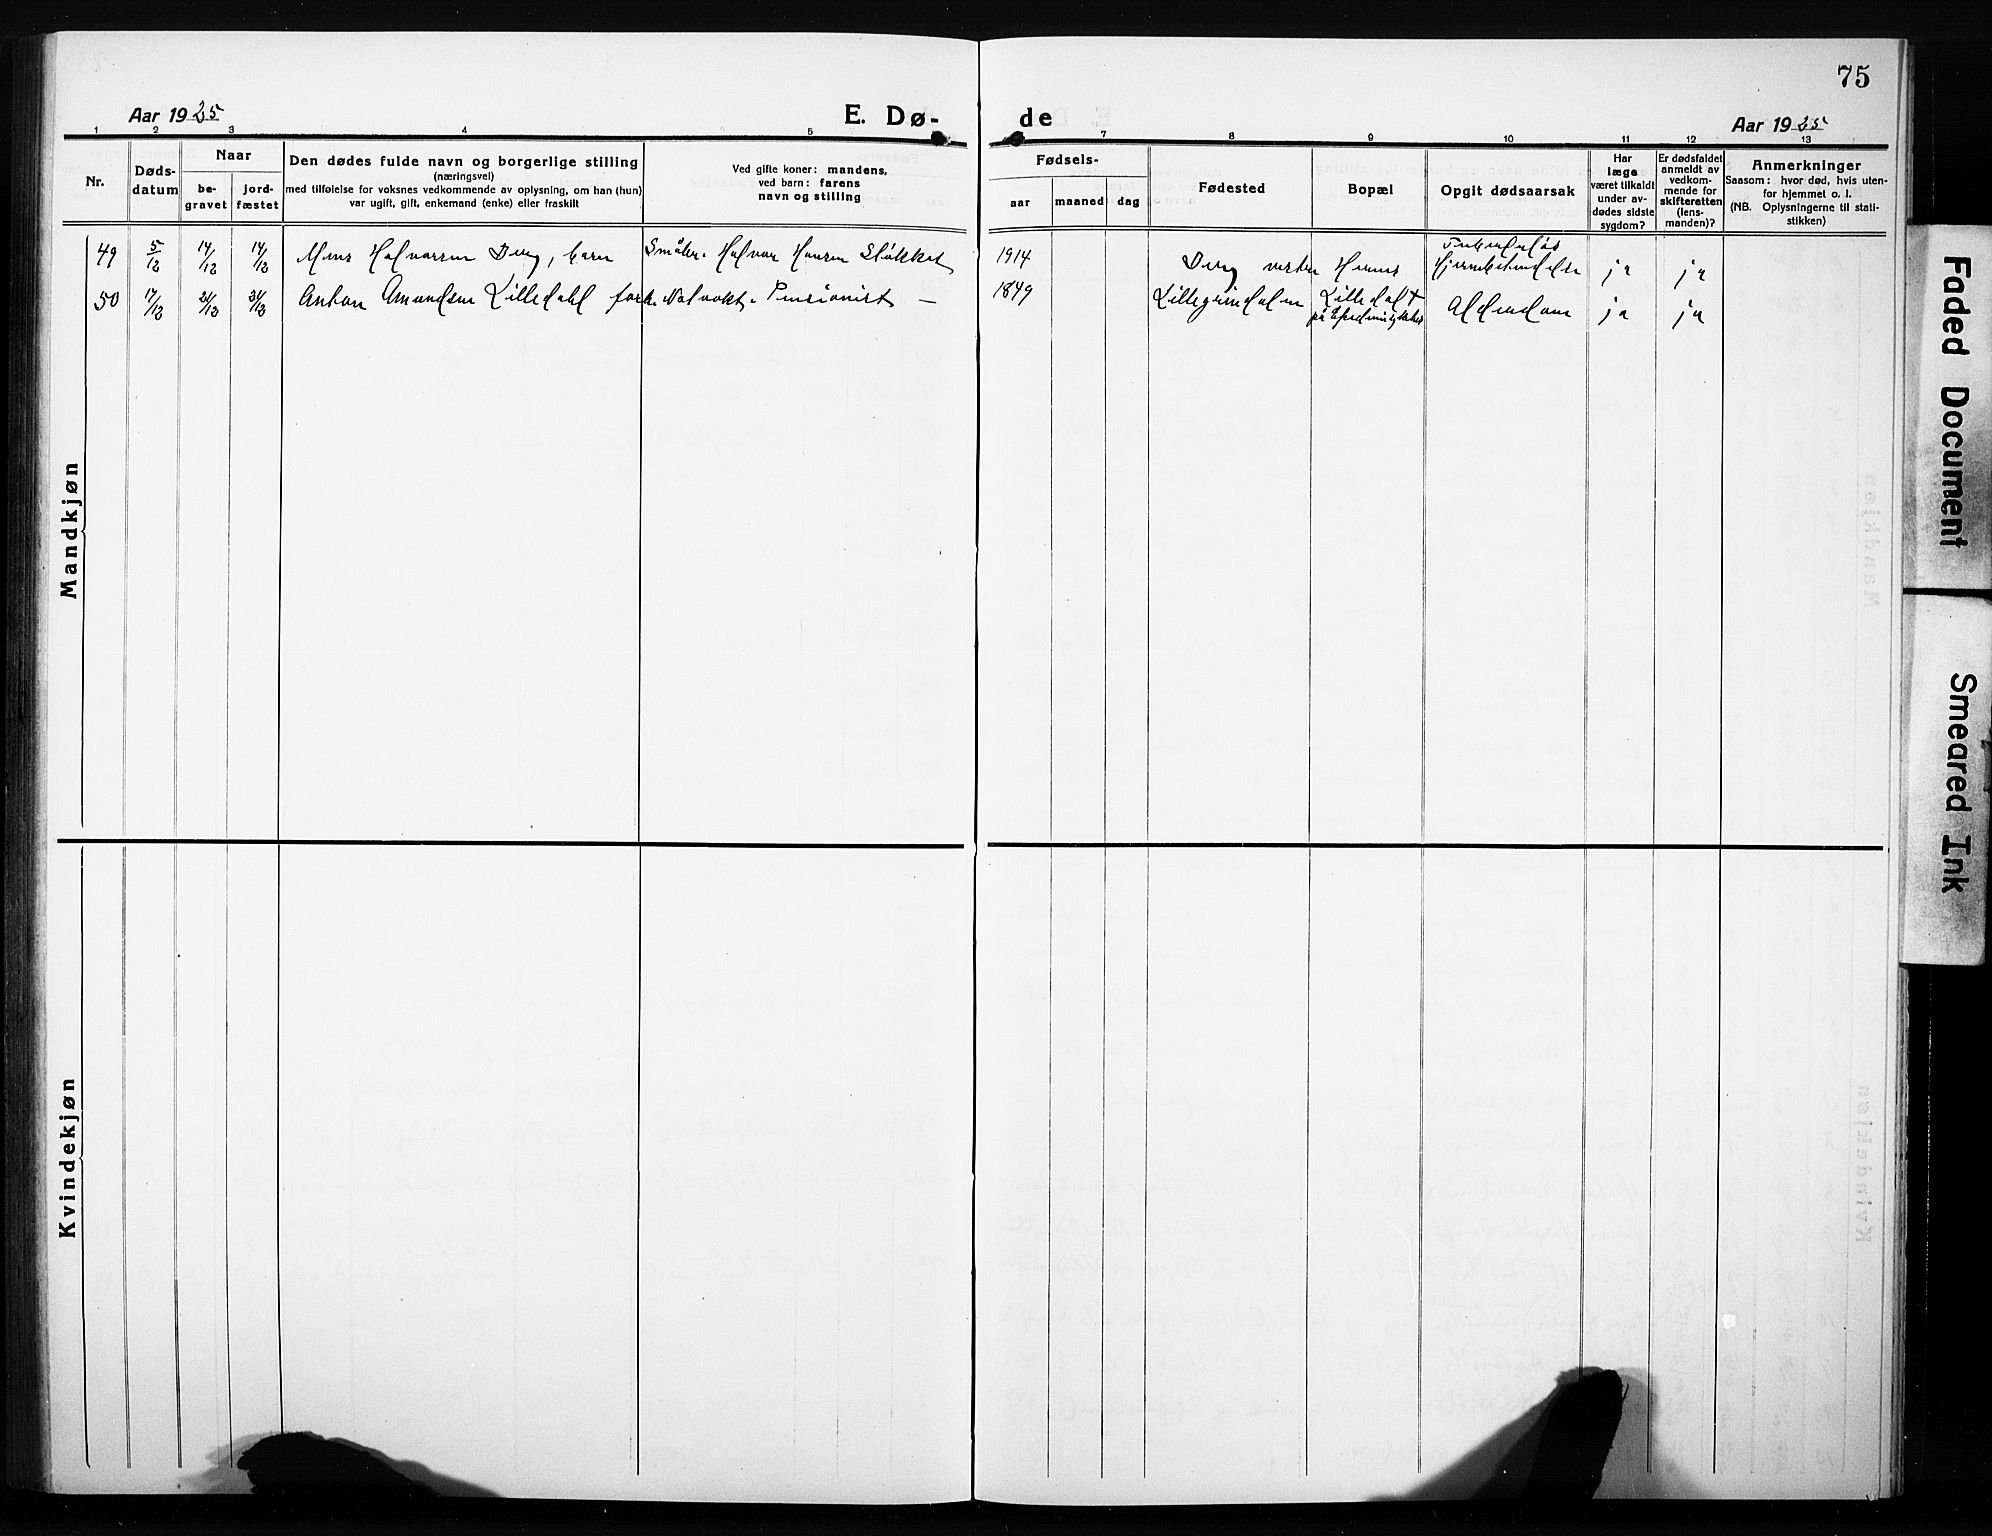 75
Aar 1925
E. Dø-
de
Aar 1925
1 2 3 4 5 7 8 9 10 11 12 13
Nr.
Døds-
datum
Naar
be-
gravet
jord-
fæstet
Den dødes fulde navn og borgerlige stilling
(næringsvei)
med tilføielse for voksnes vedkommende av oplysning, om han (hun)
var ugift, gift, enkemand (enke) eller fraskilt
Ved gifte koner: mandens,
ved barn: farens
navn og stilling
Fødsels-
aar
maaned
dag
Fødested
Bopæl
Opgit dødsaarsak
Har
læge
været tilkaldt
under av-
dødes sidste
sygdom?
Er dødsfaldet
anmeldt av
vedkom-
mende for
skifteretten
(lens-
manden)?
Anmerkninger
Saasom: hvor død, hvis uten-
for hjemmet o. l.
(NB. Oplysningerne til stati-
stikken)
49 5/12 14/12 14/12 Halvorsen barn Småbr. Halvor Hansen Støkket 1914 Hjernebetendelse ja ja
50 17/12 21/12 21/12 Anton Amundsen Lilledahl Pensionist — 1849 Lillegrindalen Lilledal Alderdom ja ja
Mandkjøn
Kvindekjøn
Faded Document
Smeared Ink